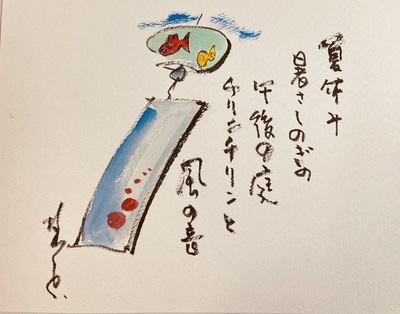 夏休み
暑さしのぎの
午後の庭
チリンチリンと
風の音